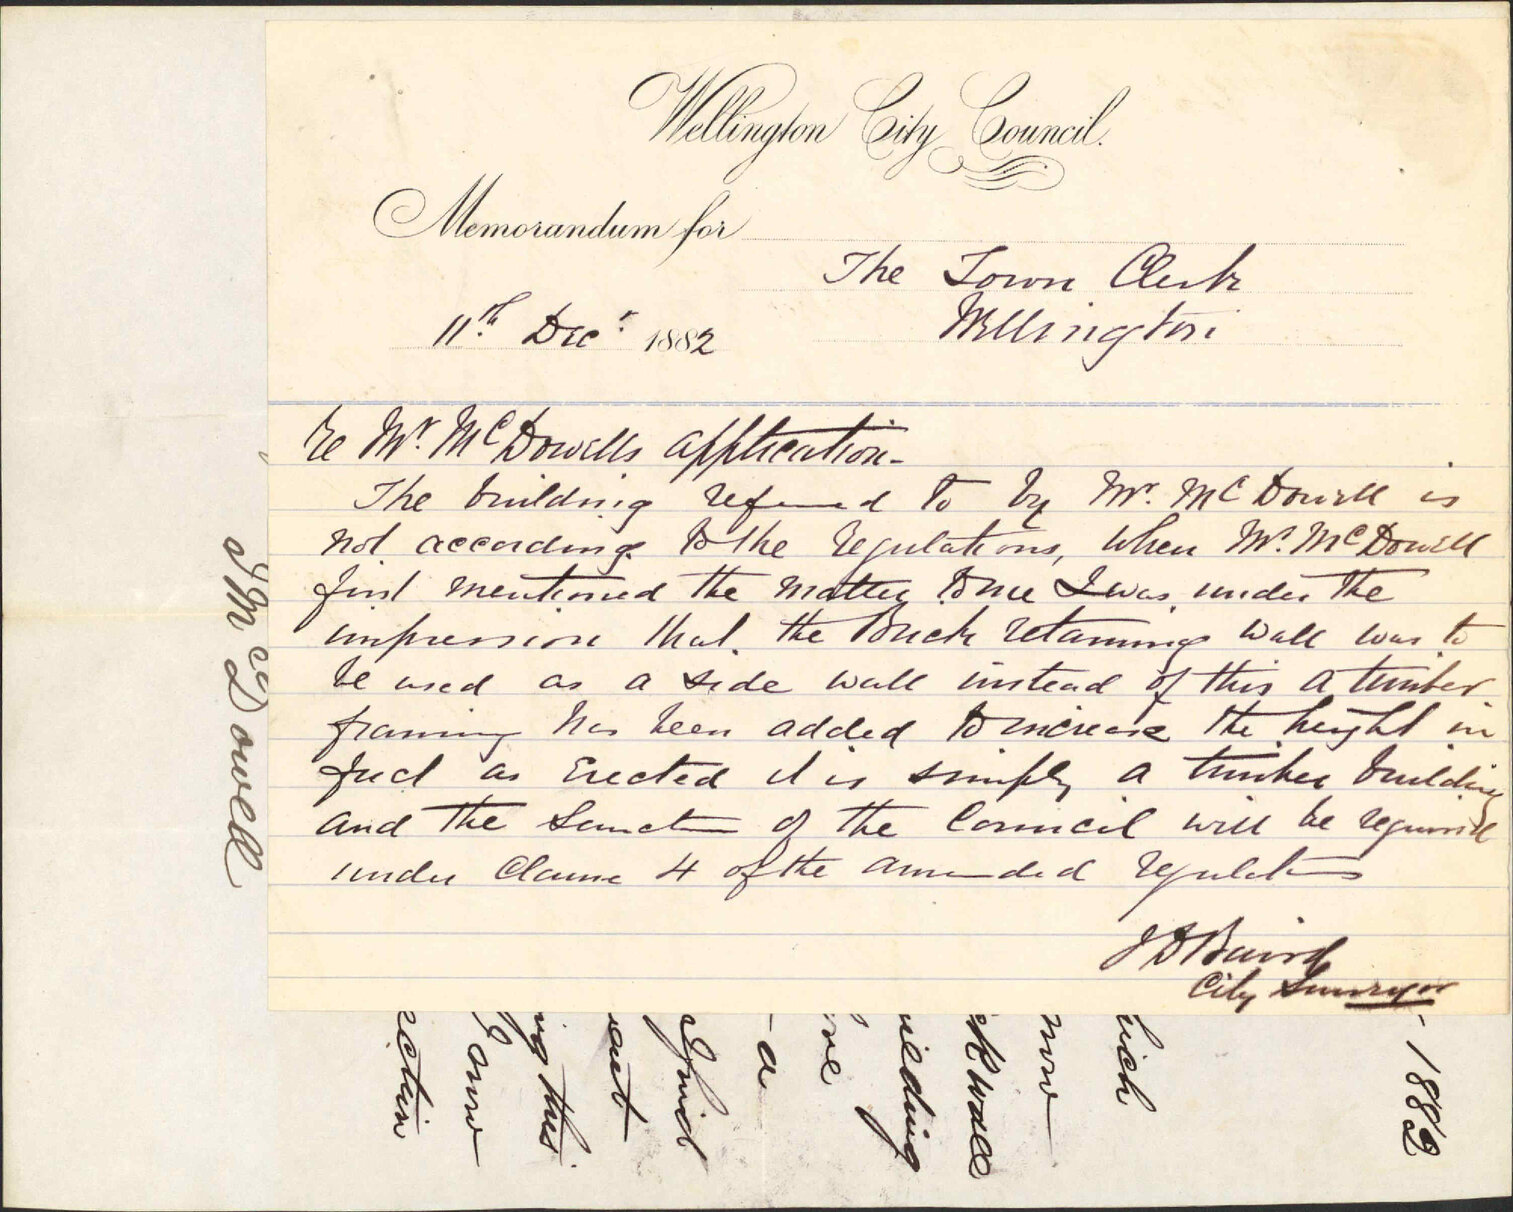 Wellington City Council.
Memorandum for
The Town Clerk
Wellington
11th Decr. 1882
re Mr. McDowells application -
The building referred to by Mr. McDowell is
not according to the regulations, when Mr. McDowell
first mentioned the matter to me I was under the
impression that the Brick retaining wall was to
be used as a side wall instead of this a timber
framing has been added to increase the height in
fact as erected it is simply a timber building
and the Sanction of the Council will be required
under Clause 4 of the amended regulations
J D Baird
City Surveyor
McDowell
- 1882
hich
now
ck wall
uilding
ve
- a
ng this